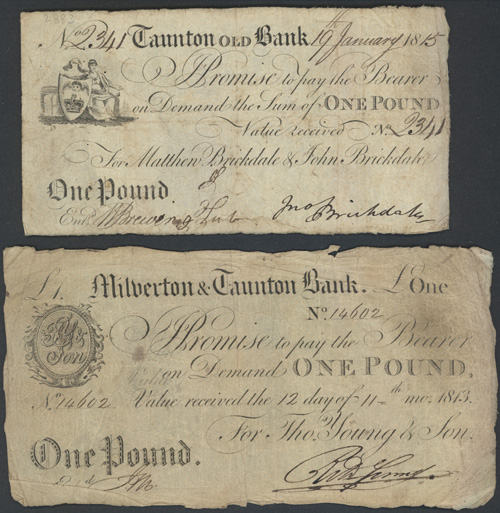 2382
No. 2341 Taunton OLD Bank 19th January 1815
I Promise to pay the Bearer
on Demand the Sum of ONE POUND
Value received No. 2341
For Matthew Brickdale & John Brickdale
One Pound
Entd.
Jno Brickdale
£1. Milverton & Taunton Bank. £One
No. 14602
TY & Son
I Promise to pay the Bearer
on Demand ONE POUND,
No. 14602 Value received the 12 day of 11th mo. 1813.
For Thos. Young & Son.
One Pound.